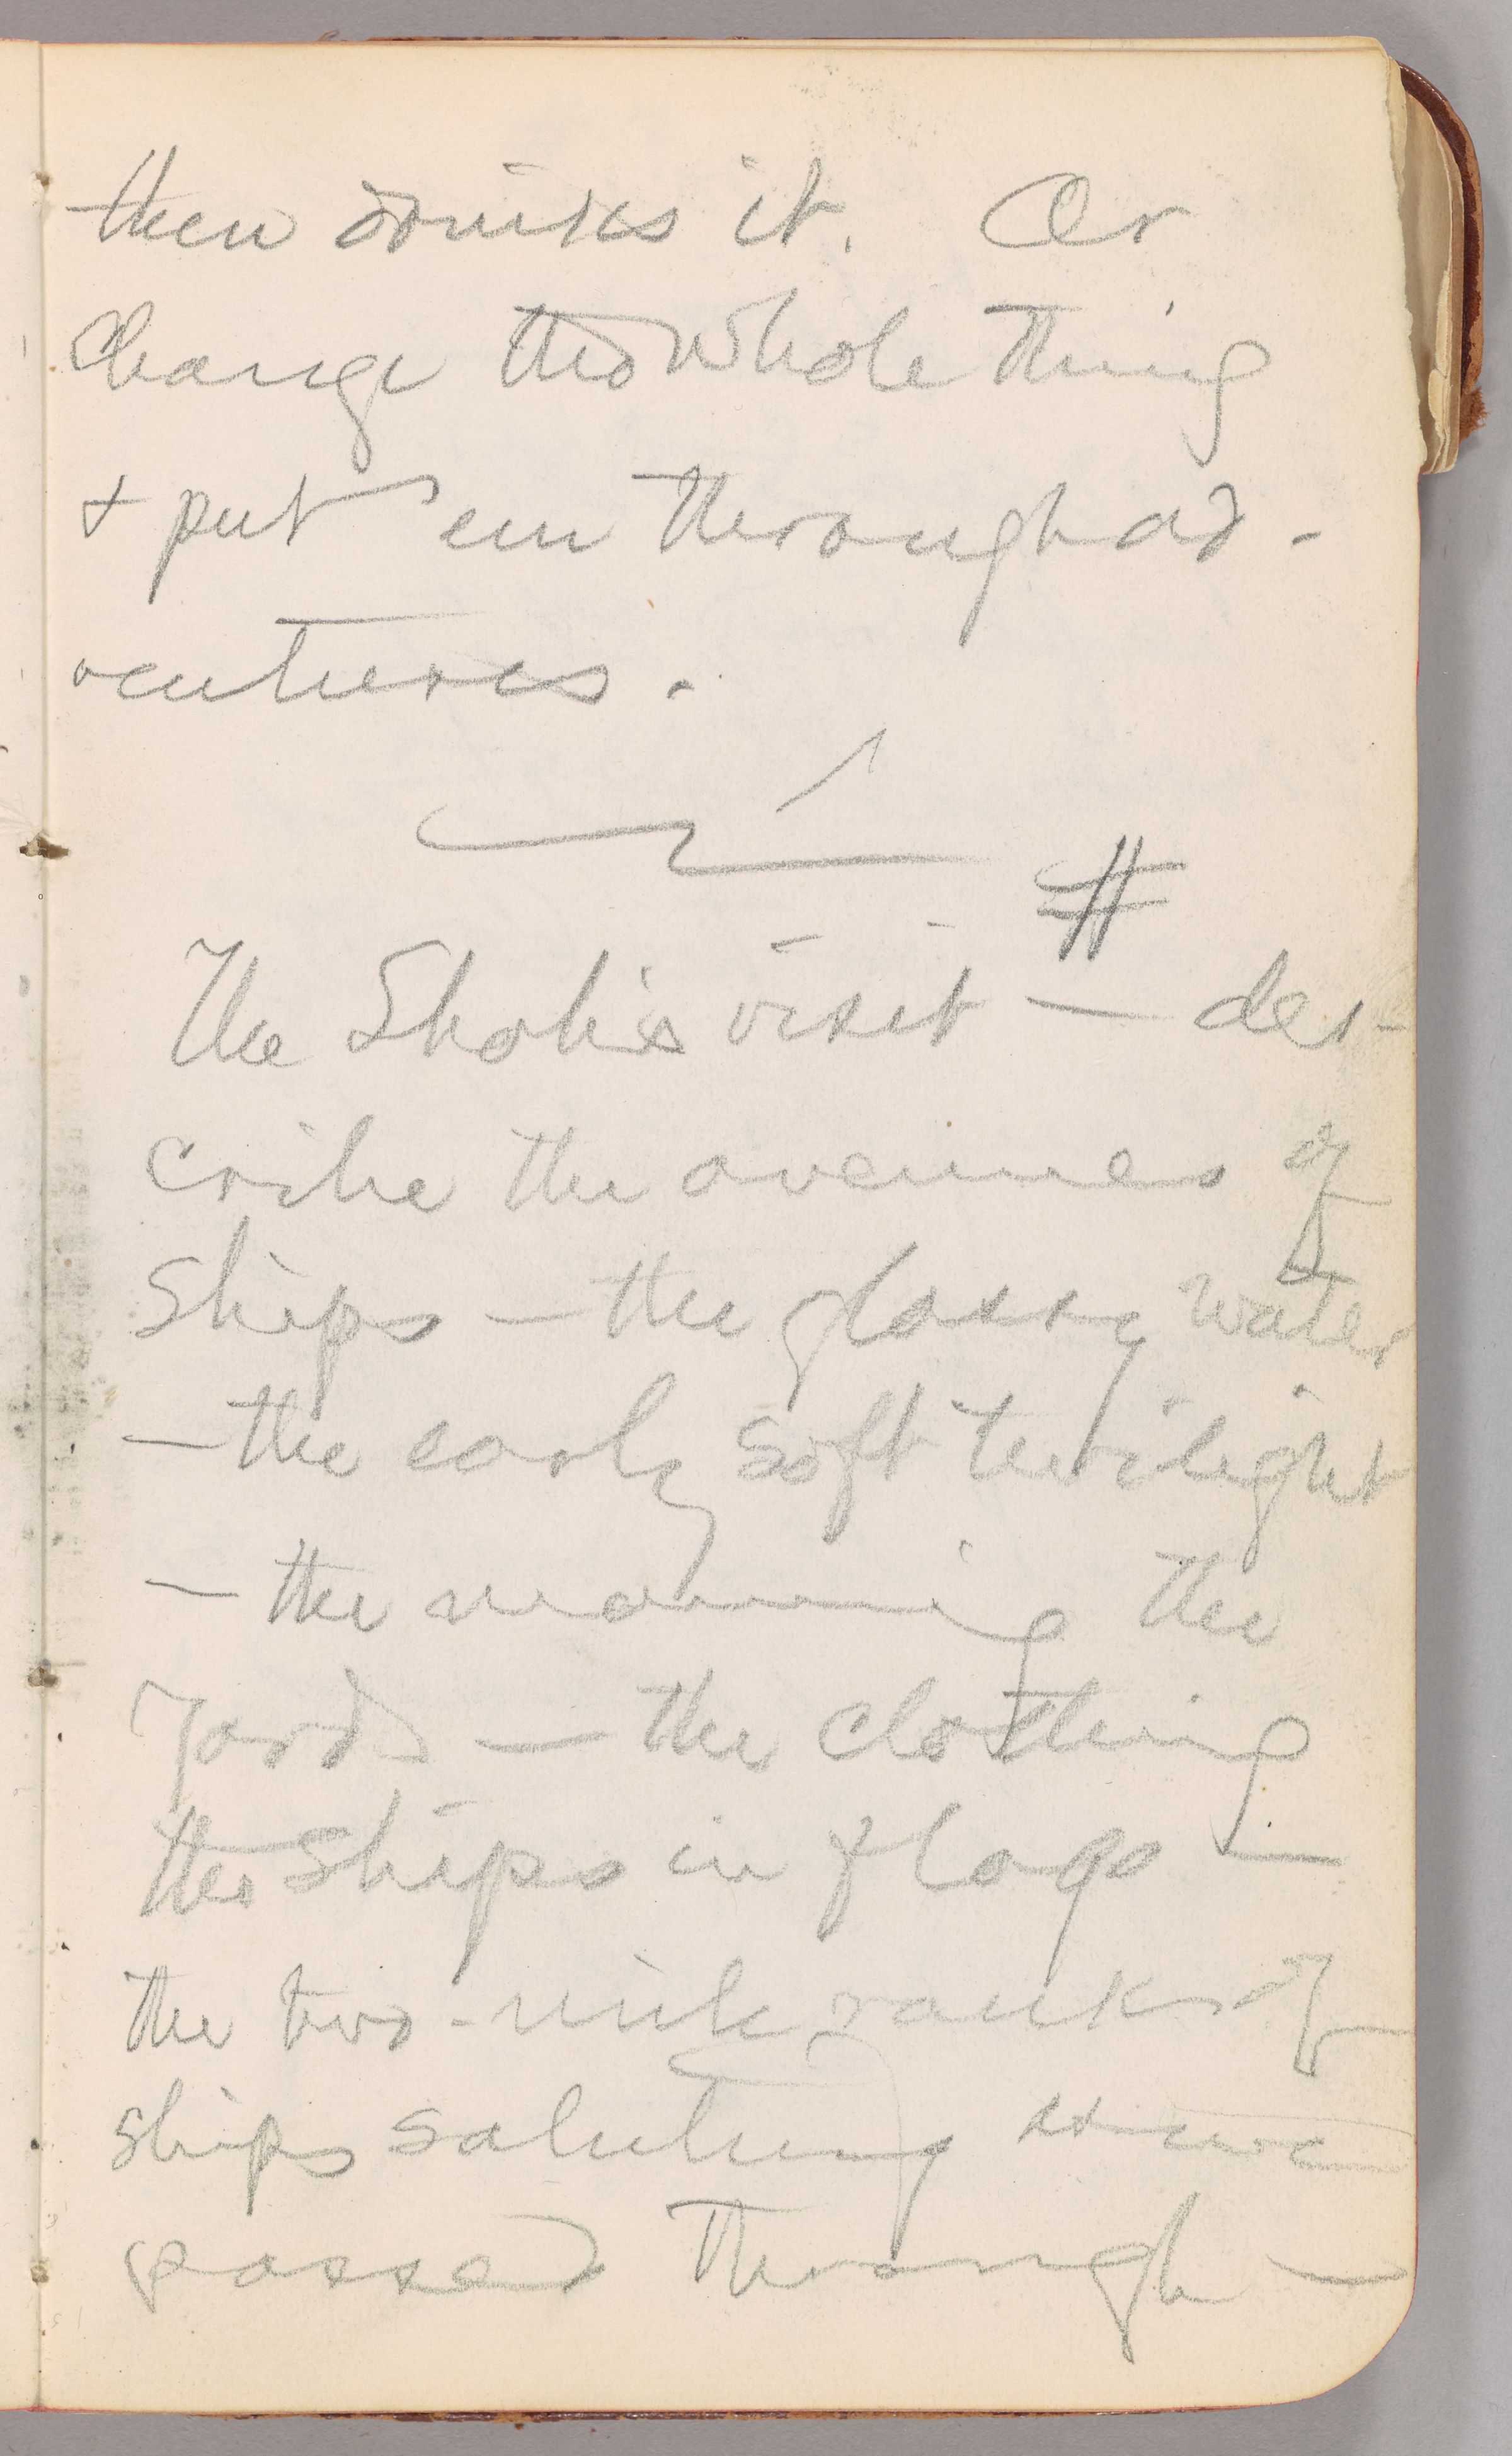 then drinks it. Or
change the whole thing
+ put 'em through ad-
ventures.
#
The Shah's visit — des-
cribe the avenues of
ships — the glassy water
— the early soft twilight
— the manning the
yards — the clothing
the ships in flags —
the two-mile ranks of
ships saluting as we
passed through —